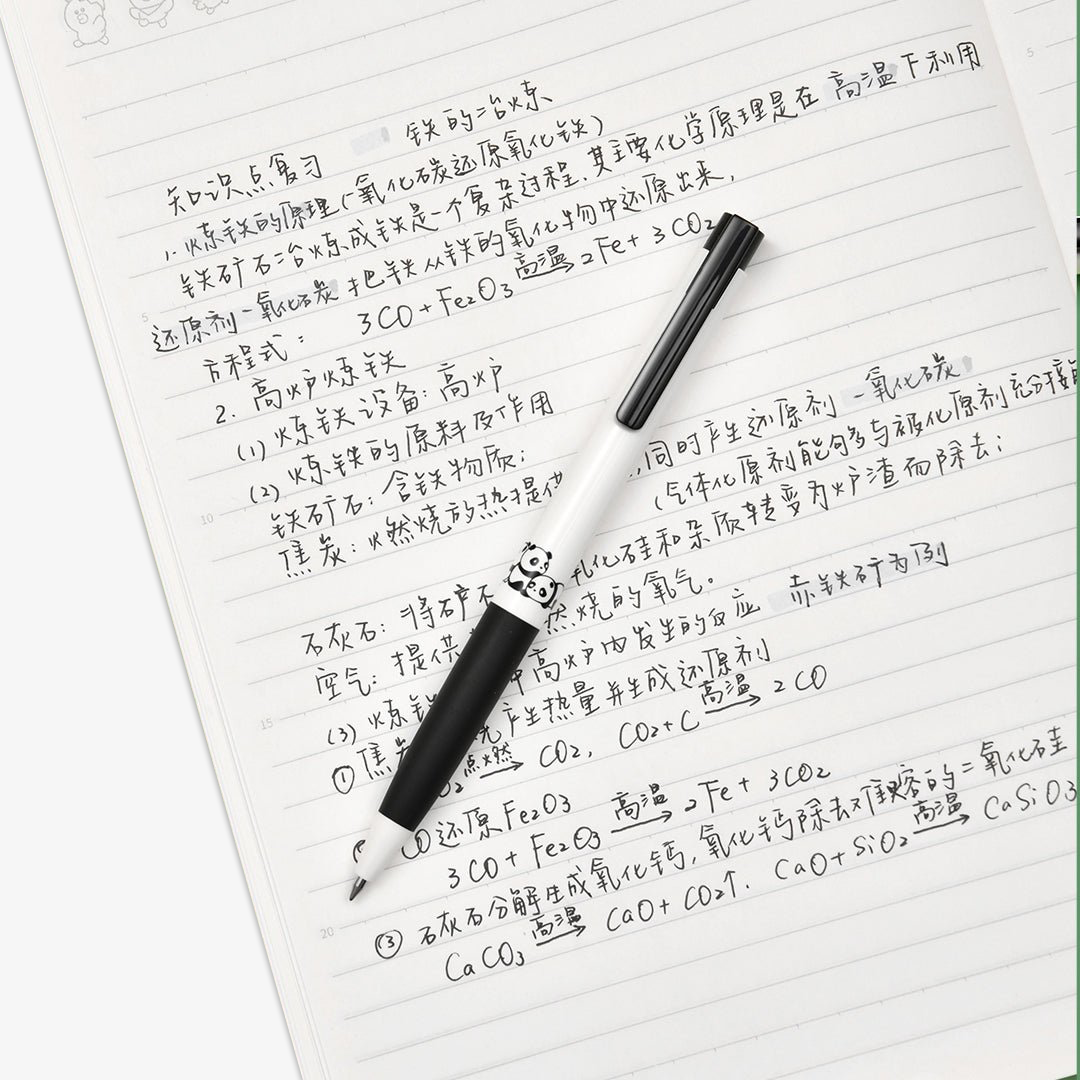 铁的冶炼
知识点复习
1. 炼铁的原理(一氧化碳还原氧化铁)
铁矿石冶炼成铁是一个复杂过程.其主要化学原理是在高温下利用
还原剂一氧化碳把铁从铁的氧化物中还原出来,
方程式: 3CO+Fe2O3 高温→ 2Fe+3CO2
2. 高炉炼铁
(1) 炼铁设备:高炉
(2) 炼铁的原料及作用
铁矿石:含铁物质;
焦炭:燃烧放热提供 ,同时产生还原剂一氧化碳
(气体化原剂能够多与被化原剂充分接
石灰石:将矿石 氧化硅和杂质转变为炉渣而除去;
空气:提供 燃烧的氧气。
(3) 炼铁 中高炉内发生的反应 赤铁矿为例
① 焦炭 产生热量并生成还原剂
O2 点燃→ CO2, CO2+C 高温→ 2CO
CO还原Fe2O3
3CO+Fe2O3 高温→ 2Fe+3CO2
③ 石灰石分解生成氧化钙,氧化钙除去难熔的二氧化硅
CaCO3 高温→ CaO+CO2↑. CaO+SiO2 高温→ CaSiO3
5
10
15
20
5